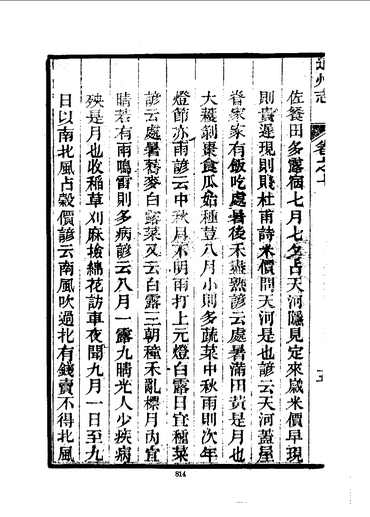 通州志 卷之十
佐餐田多露宿七月七夕占天河隱見定來歲米價早現
則貴遲現則賤杜甫詩米價問天河是也諺云天河蓋屋
脊家家有飯吃處暑後禾盡熟諺云處暑滿田黃是月也
大穫剝棗食瓜始種荳八月小則多蔬菜中秋雨則次年
燈節亦雨諺云中秋月不明雨打上元燈白露日宜種菜
諺云處暑蕎麥白露菜又云白露三朝種禾亂標月內宜
晴若有雨鳴雷則多病諺云八月一露九晴光人少疾病
殃是月也收稻草刈麻撿綿花訪車夜聞九月一日至九
日以南北風占穀價諺云南風吹過北有錢賣不得北風
814